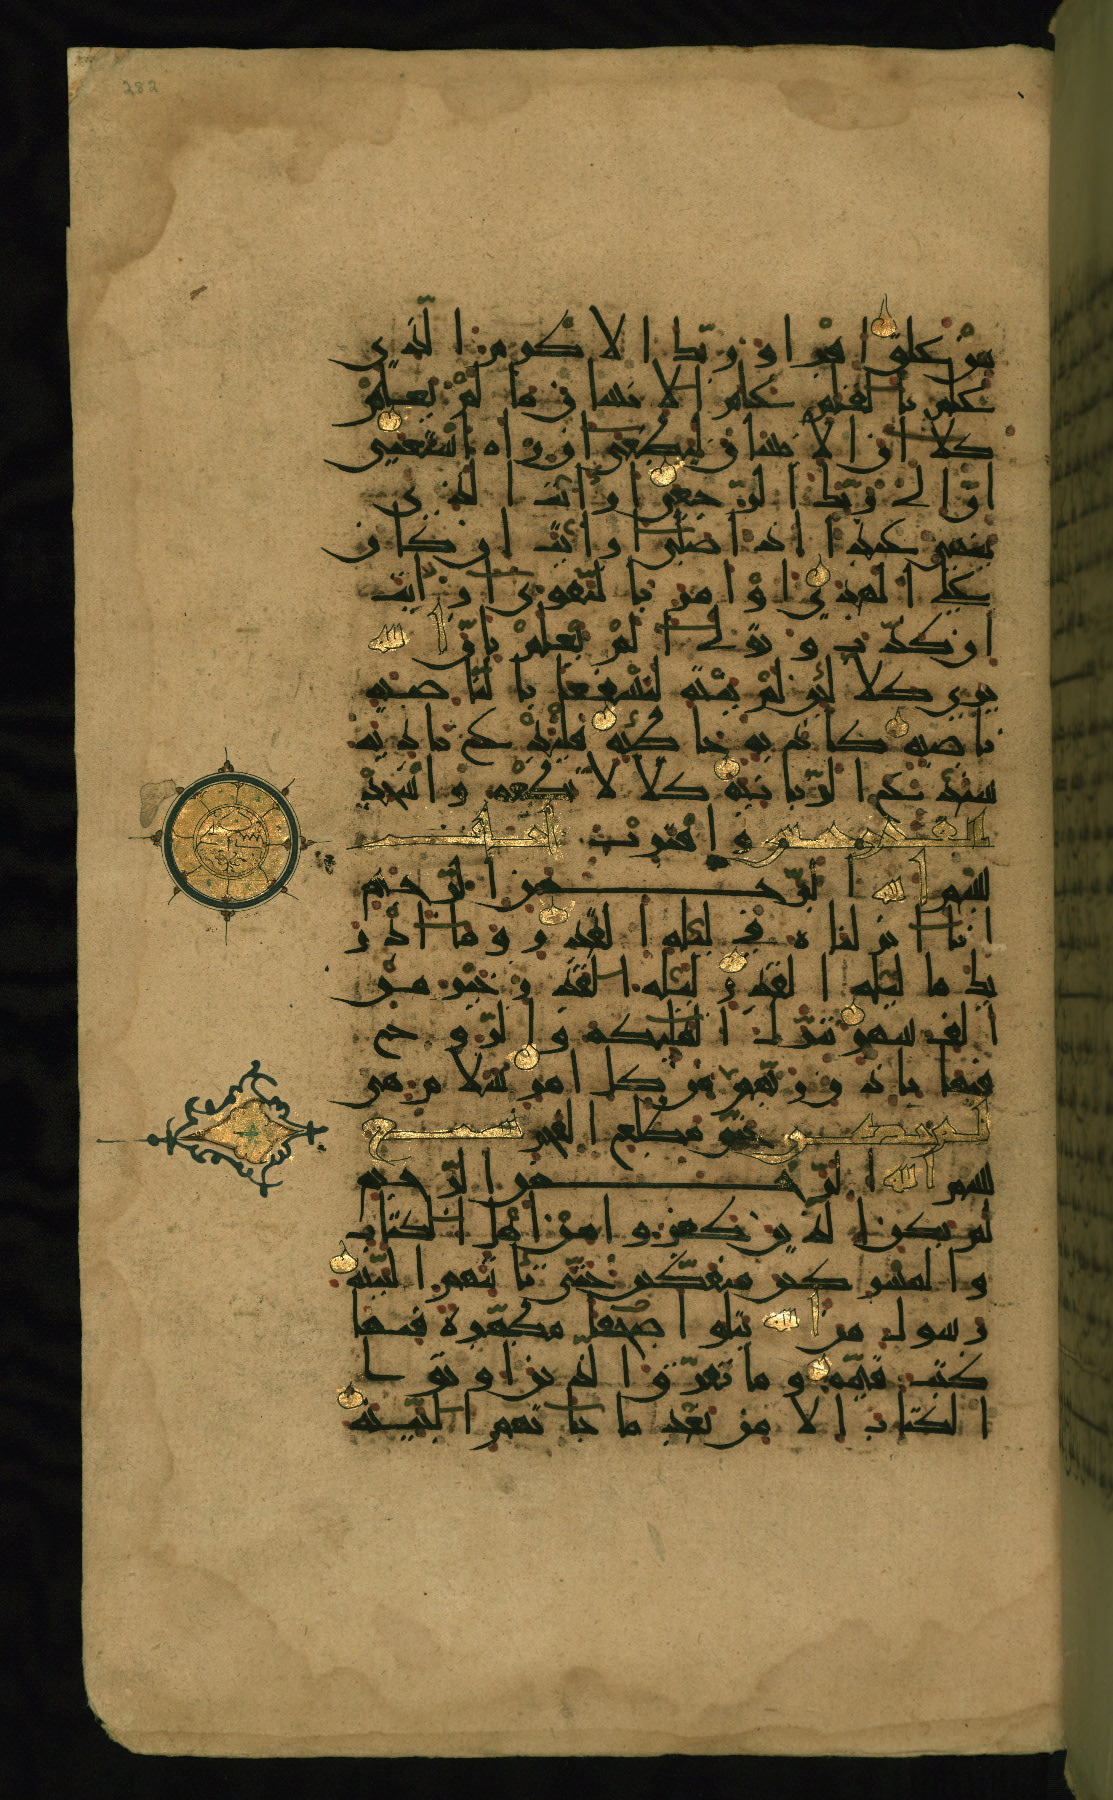 282
من علق اقرا وربك الاكرم الذي
علم بالقلم علم الانسان ما لم يعلم
كلا ان الانسان ليطغى ان راه استغنى
ان الى ربك الرجعى ارايت الذي
ينهى عبدا اذا صلى ارايت ان كان
على الهدى او امر بالتقوى ارايت
ان كذب وتولى الم يعلم بان الله
يرى كلا لئن لم ينته لنسفعا بالناصيه
ناصيه كاذبه خاطئه فليدع ناديه
سندع الزبانيه كلا لا تطعه واسجد
القدر خمس واقترب
بسم الله الرحمن الرحيم
انا انزلناه في ليله القدر وما ادر
يك ما ليله القدر ليله القدر خير من
الف شهر تنزل الملئكه والروح
فيها باذن ربهم من كل امر سلام هي
لم يكن حتى مطلع الفجر تسع
بسم الله الرحمن الرحيم
لم يكن الذين كفروا من اهل الكتاب
والمشركين منفكين حتى تاتيهم البينه
رسول من الله يتلوا صحفا مطهره فيها
كتب قيمه وما تفرق الذين اوتوا
الكتاب الا من بعد ما جاتهم البينه